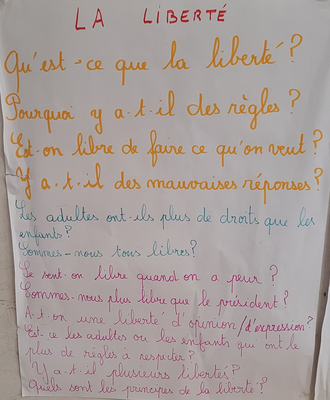 LA LIBERTÉ
Qu'est-ce que la liberté?
Pourquoi y a-t-il des règles?
Est-on libre de faire ce qu'on veut?
Y a-t-il des mauvaises réponses?
Les adultes ont-ils plus de droits que les
enfants?
Sommes-nous tous libres?
Se sent-on libre quand on a peur?
Sommes-nous plus libre que le président?
A-t-on une liberté d'opinion/d'expression?
Est-ce les adultes ou les enfants qui ont le
plus de règles à respecter?
Y a-t-il plusieurs libertés?
Quels sont les principes de la liberté?